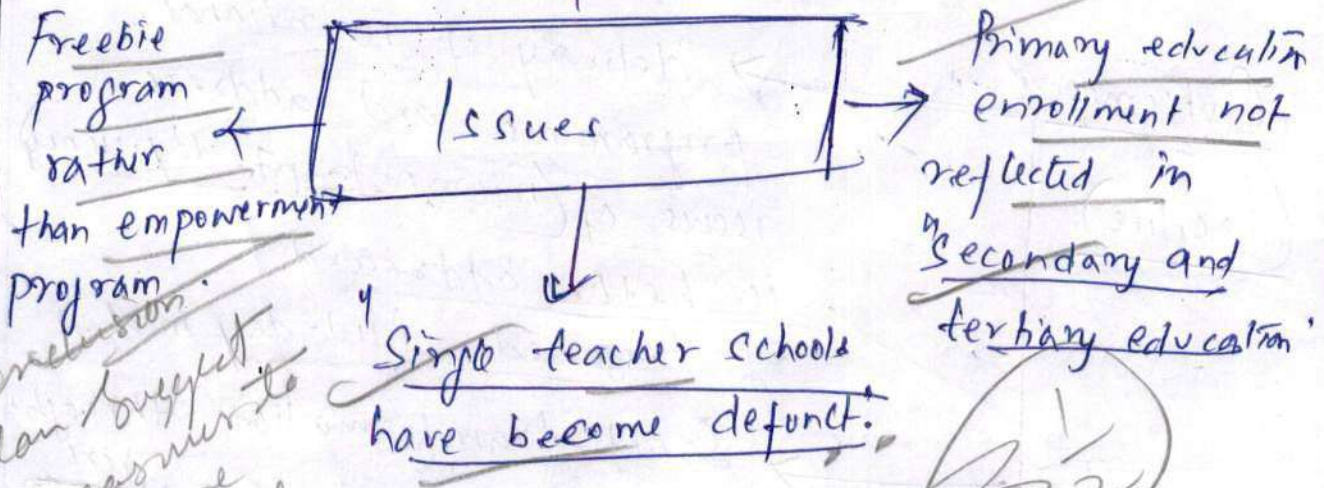 Freebie
program
rather
than empowerment
program.
Issues
Primary education
enrollment not
reflected in
"Secondary and
tertiary education.
" Single teacher schools
have become defunct.
conclusion.
can suggest
measures to